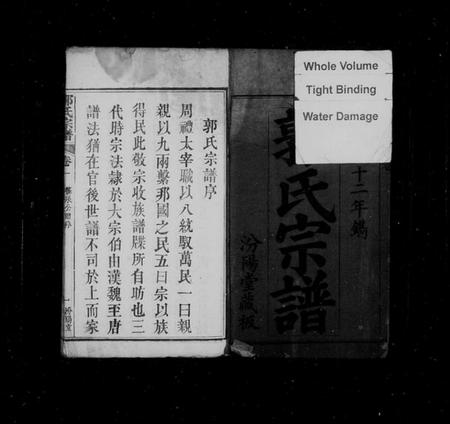 Whole Volume
Tight Binding
Water Damage
十二年鐫
郭氏宗譜
汾陽堂藏板
郭氏宗譜序
周禮太宰職以八統馭萬民一曰親
親以九兩繫邦國之民五曰宗以族
得民此敬宗收族譜牒所自昉也三
代時宗法隸於大宗伯由漢魏至唐
譜法猶在官後世譜不司於上而家
郭氏宗譜
卷一
一
汾陽堂